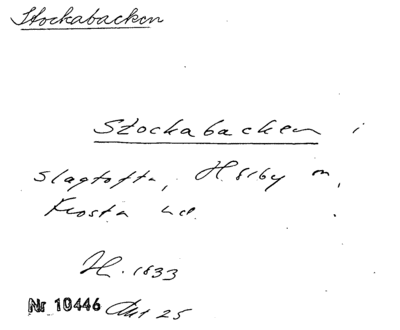 Stockabacken
Stockabacken i
Slagtofta, Hörby sn,
Frosta hd.
H. 1833
Nr 10446 Akt 25